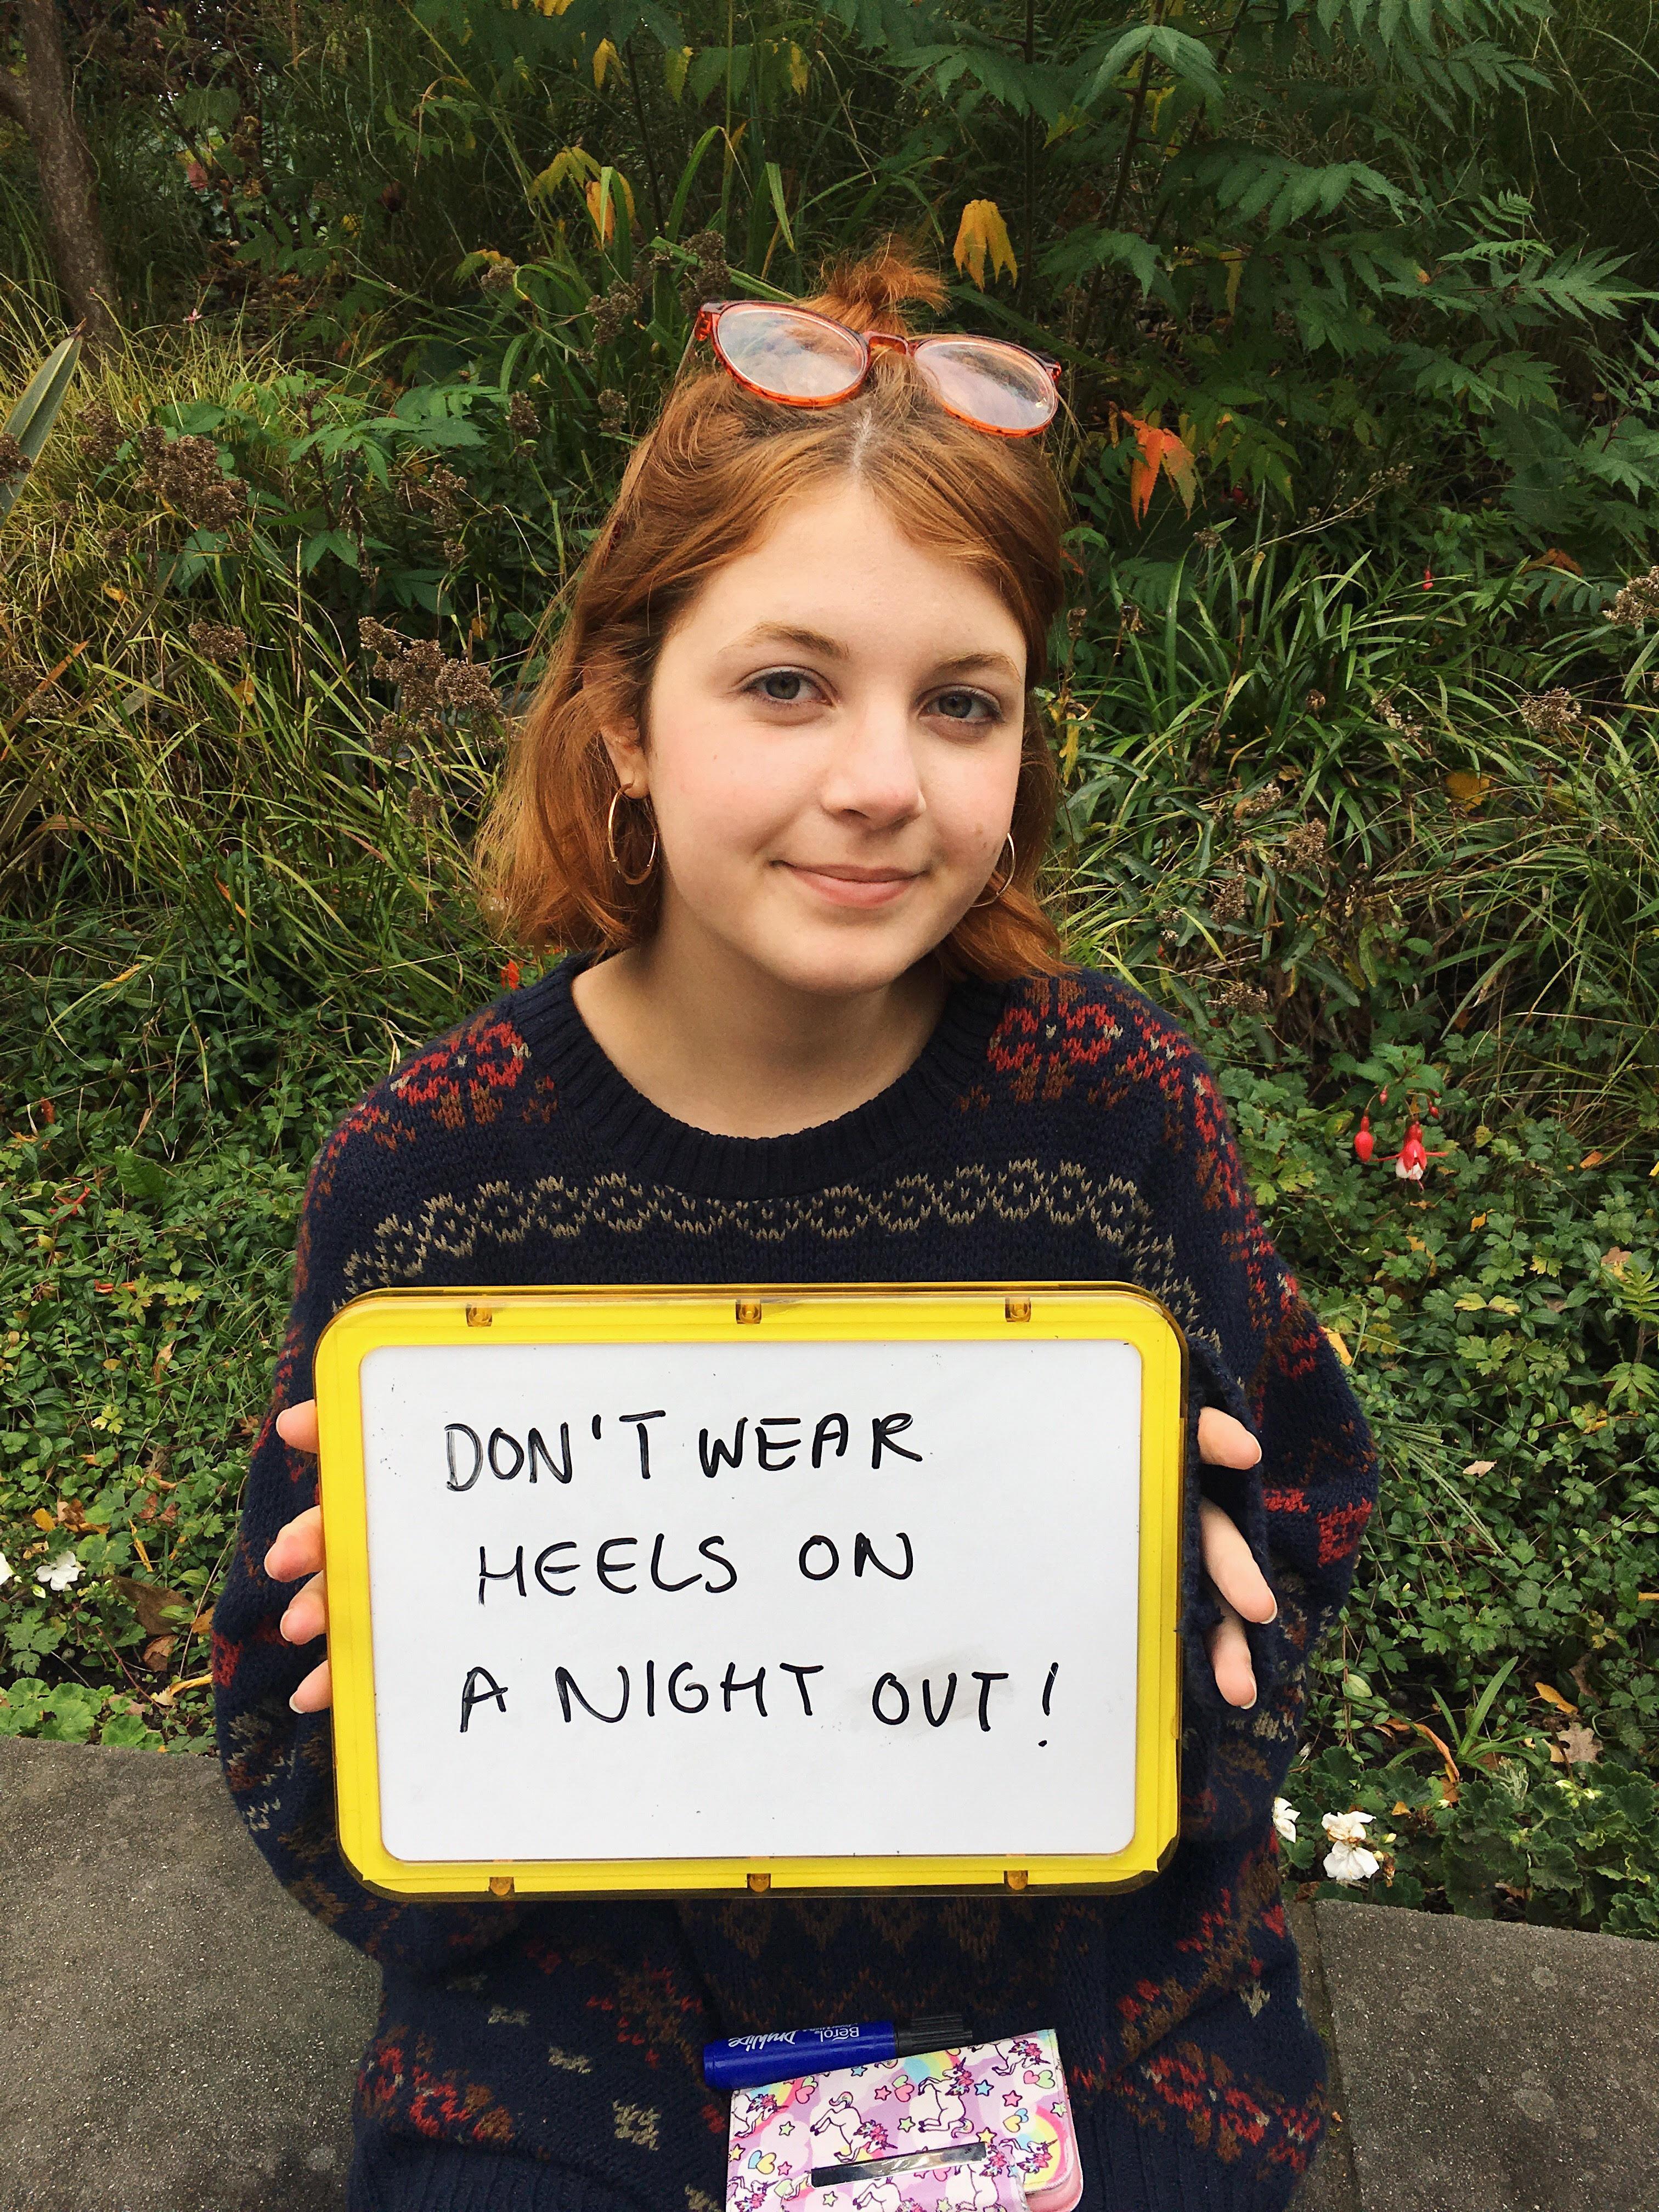 DON'T WEAR
HEELS ON
A NIGHT OUT!
Berol
Drywipe